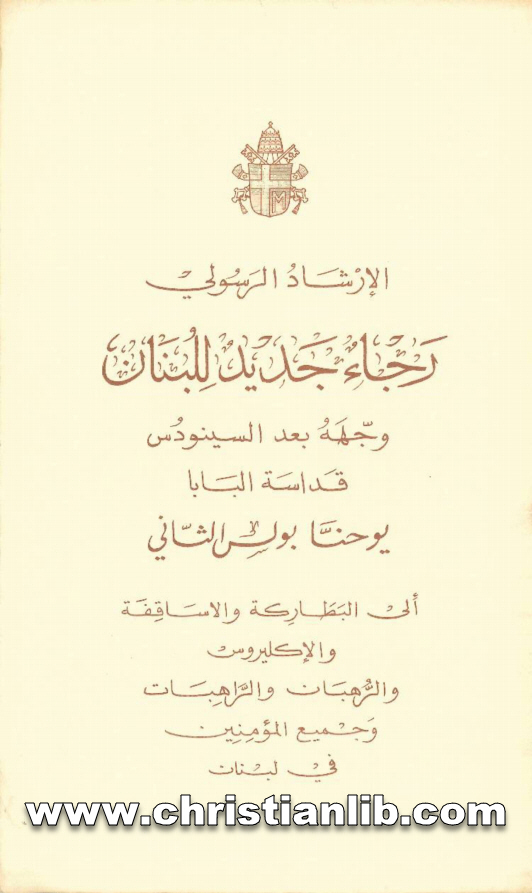 الإرْشَادُ الرَسُولي
رَجَاءٌ جَديدٌ لِلُبْنَان
وجّهَهُ بعد السينودُس
قَداسَة البَابا
يوحنَّا بولس الثّاني
ألى البَطَارِكة والاسَاقِفَة
والإكليروس
والرُّهبَان والرَّاهِبَات
وَجميع المؤمِنِين
في لبنان
www.christianlib.com